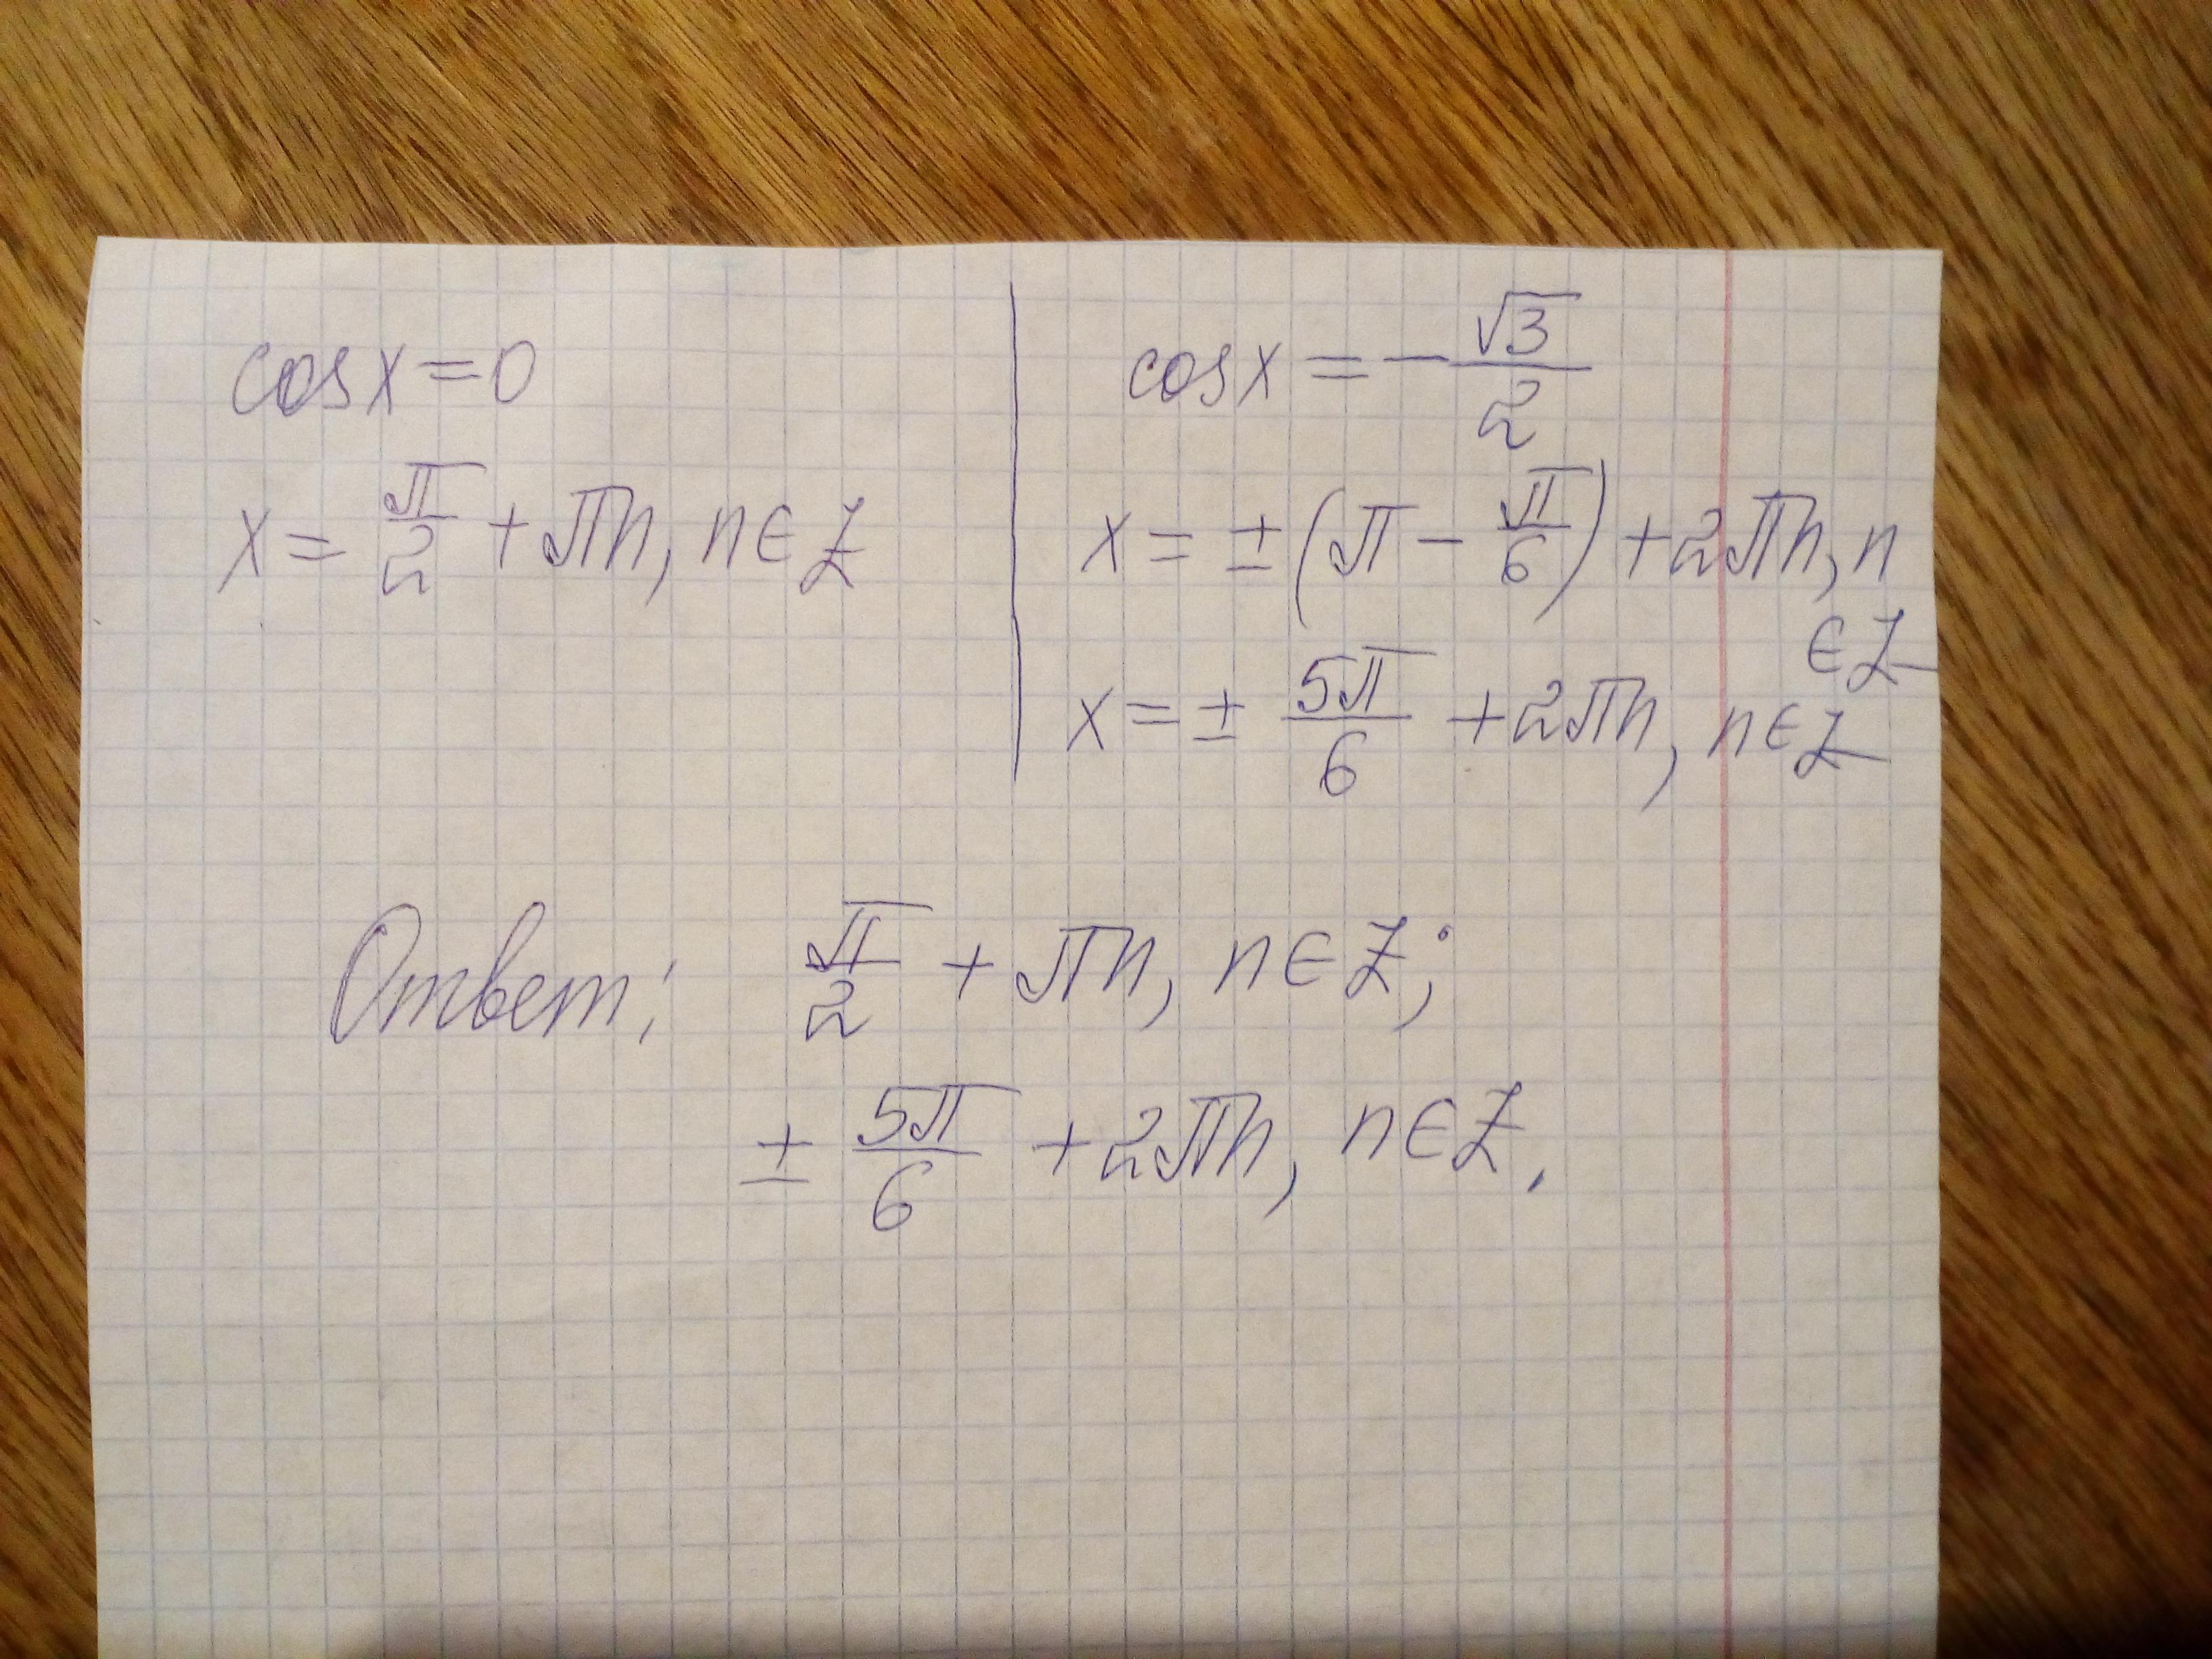 cos x = 0
x = π/2 + πn, n ∈ Z
cos x = - √3/2
x = ± (π - π/6) + 2πn, n
∈ Z
x = ± 5π/6 + 2πn, n ∈ Z
Ответ: π/2 + πn, n ∈ Z;
± 5π/6 + 2πn, n ∈ Z.